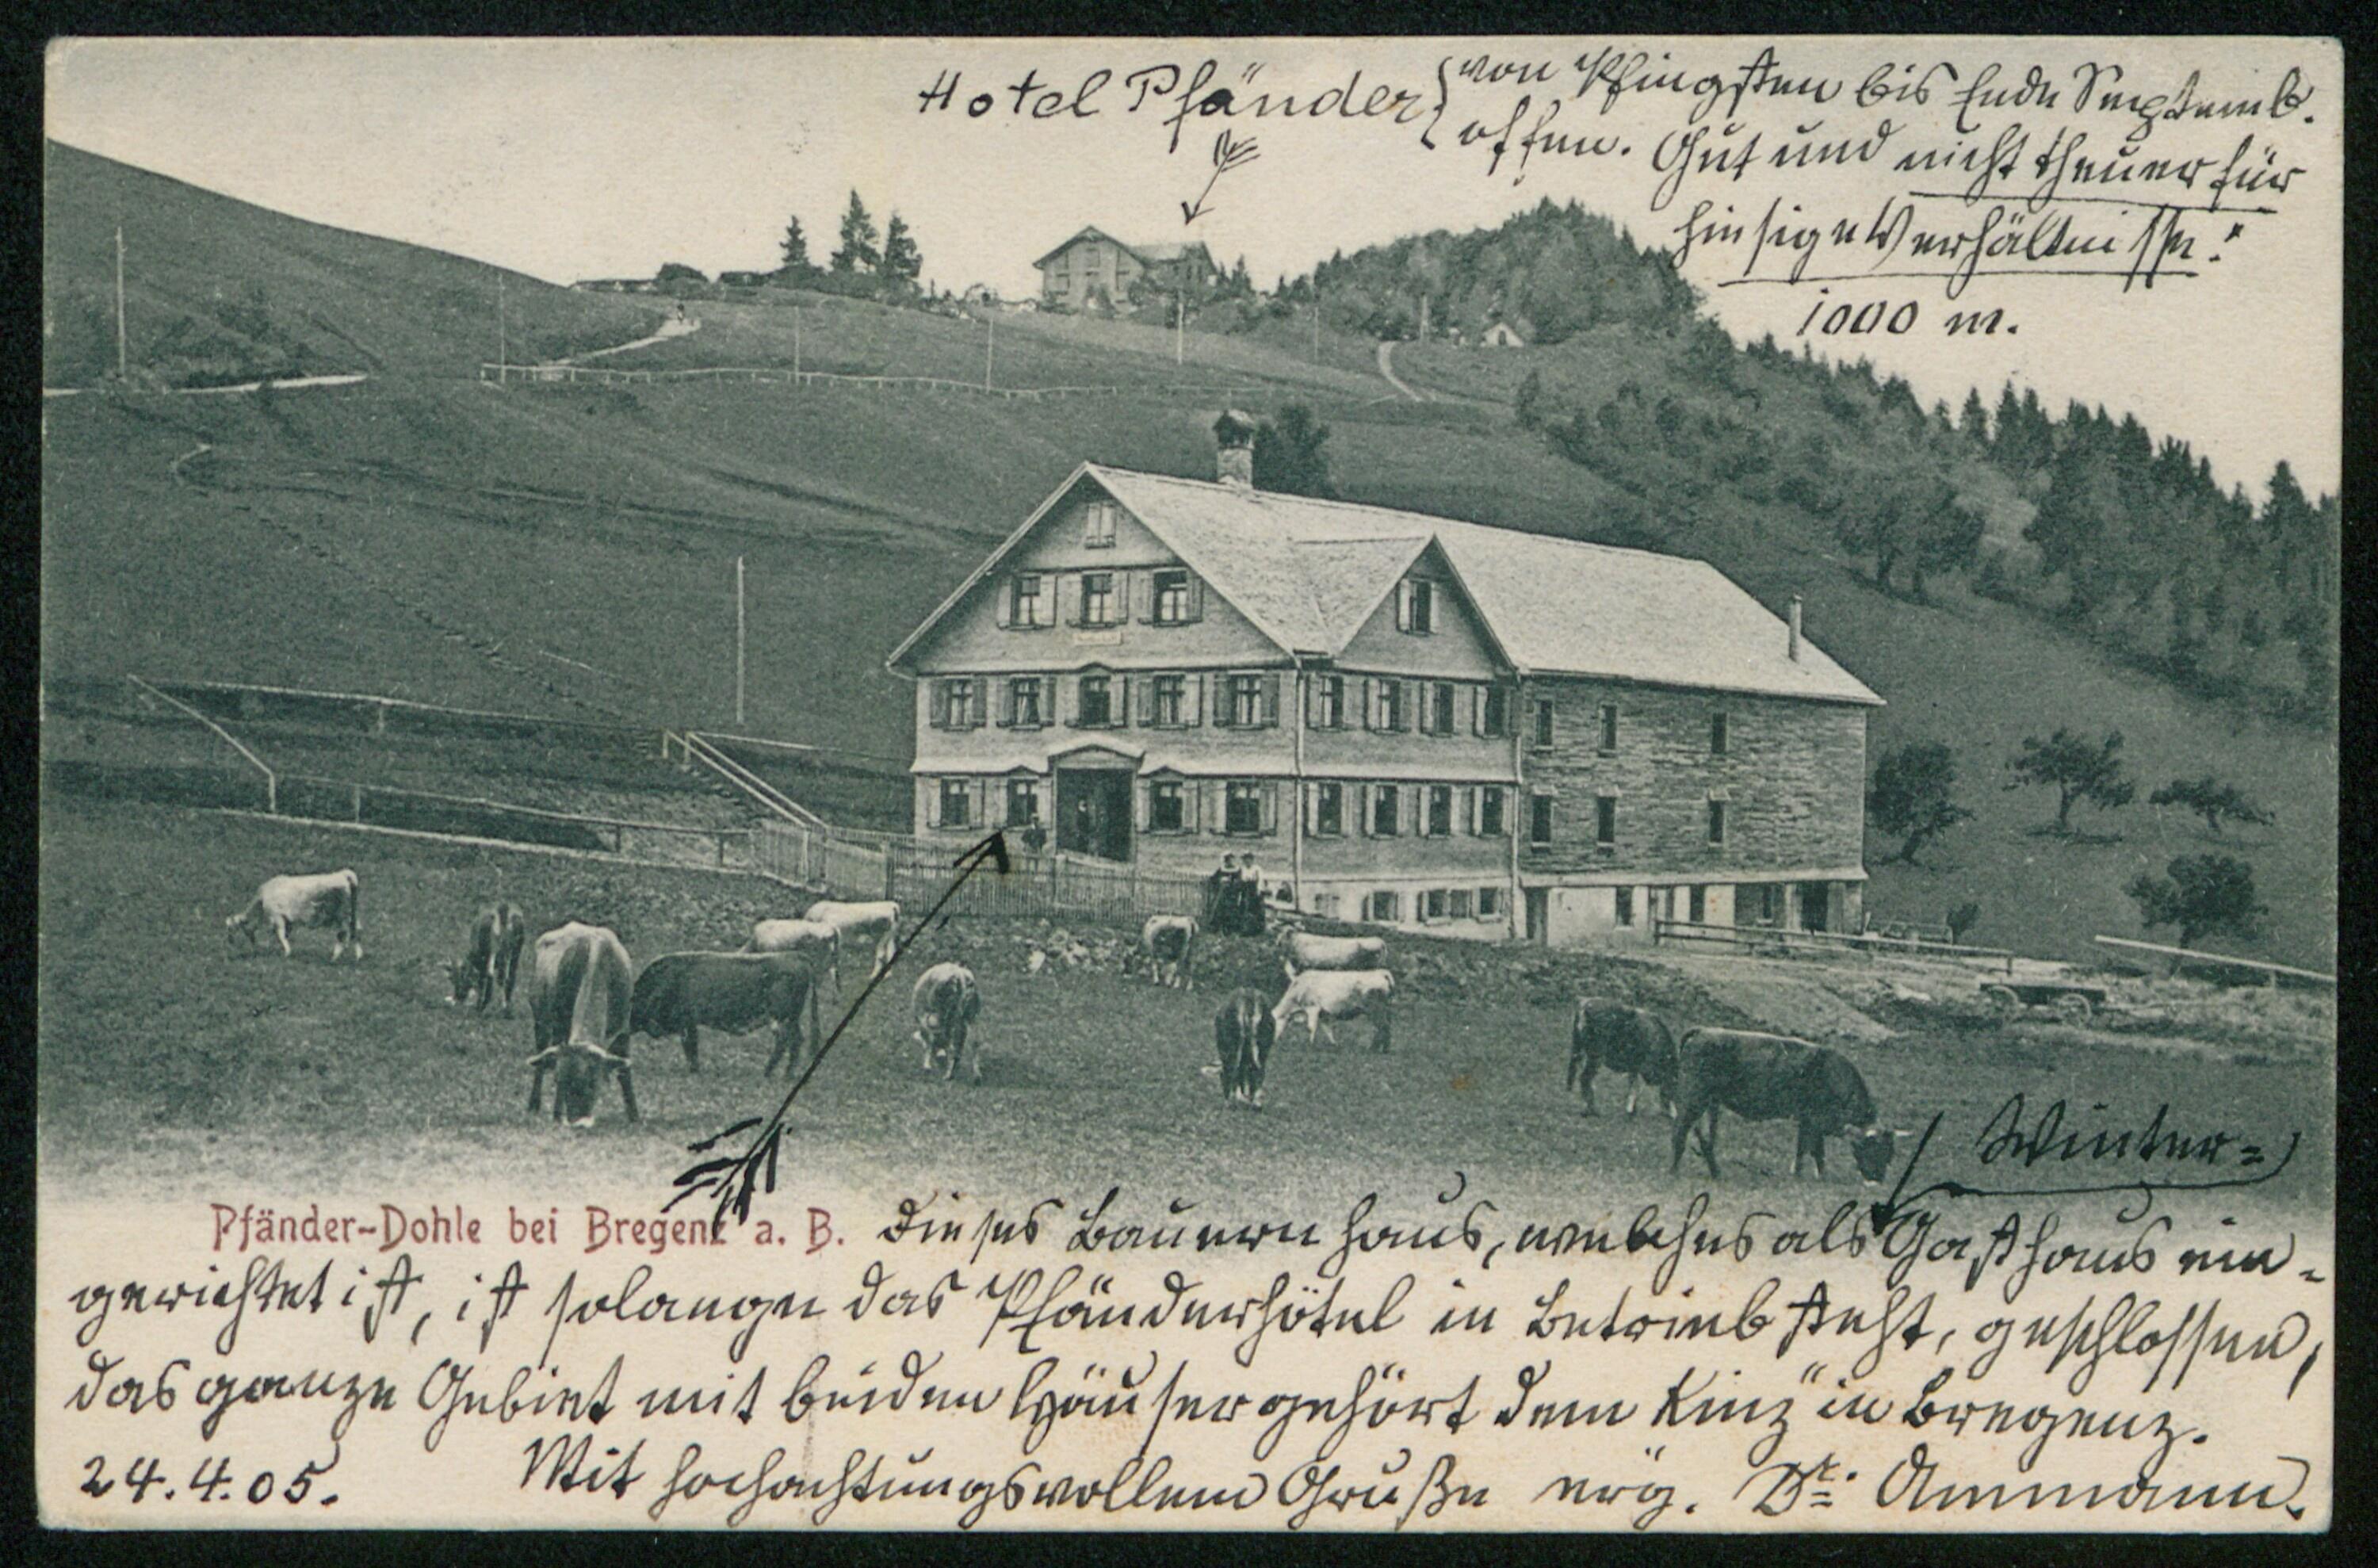 Hotel Pfänder { von Pfingsten bis Ende Septemb.
offen. Gut und nicht theuer für
hiesige Verhältnisse!
1000 m.
Winter=
Pfänder-Dohle bei Bregenz a. B. Dieses Bauernhaus, welches als Gasthaus ein-
gerichtet ist, ist solange das Pfänderhôtel in Betrieb steht, geschlossen,
das ganze Gebiet mit beiden Häuser gehört dem Kinz in Bregenz.
24.4.05. Mit hochachtungsvollem Gruße erg. Dr. Ammann.